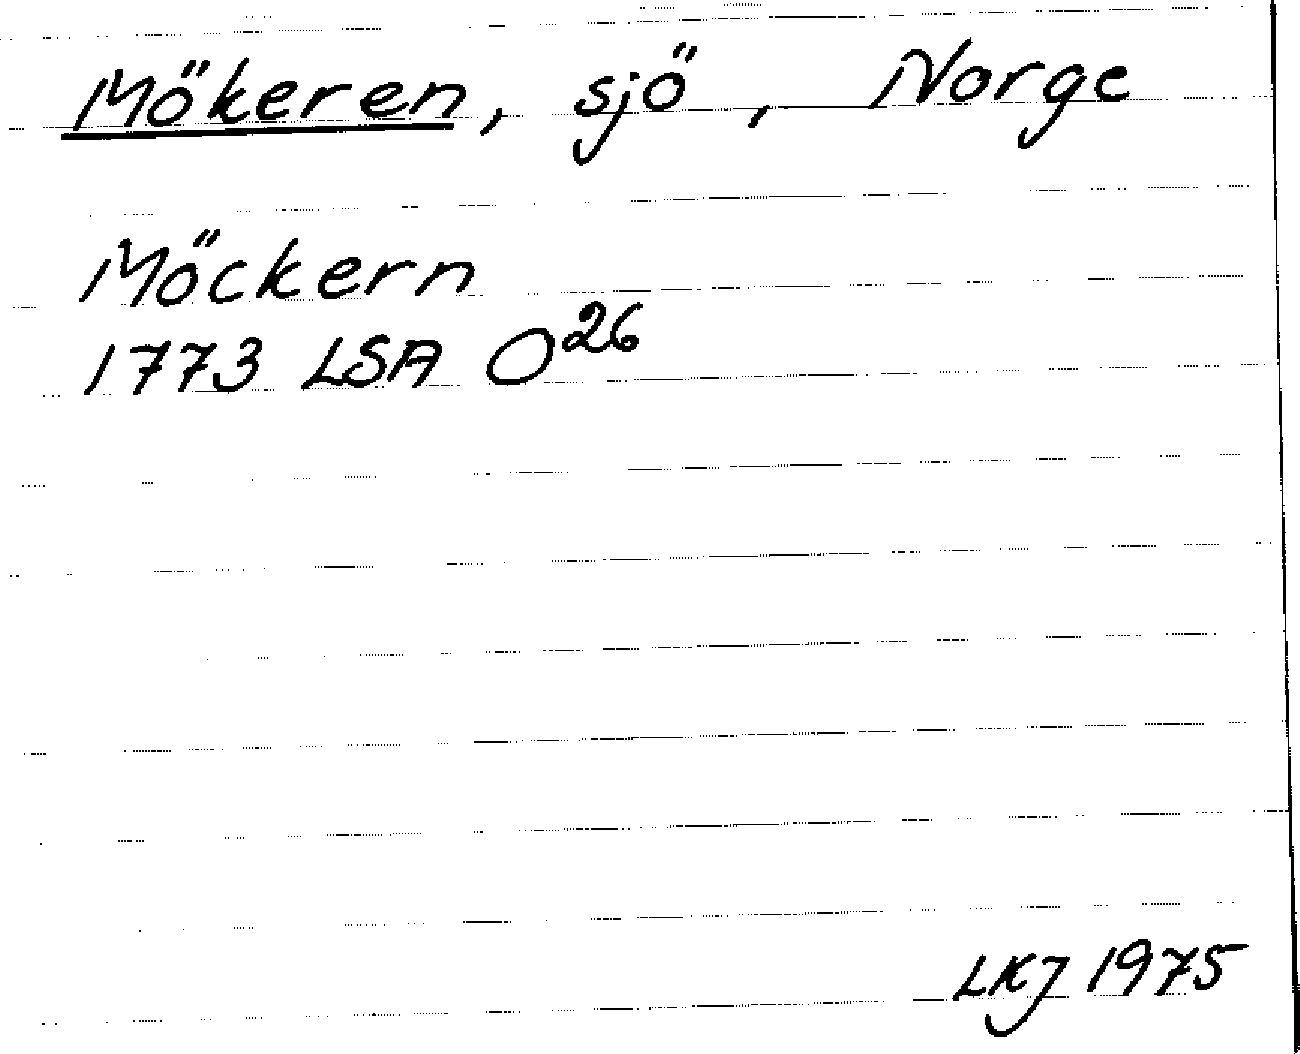 Mökeren, sjö, Norge
Möckern
1773 LSA O26
LKJ 1975